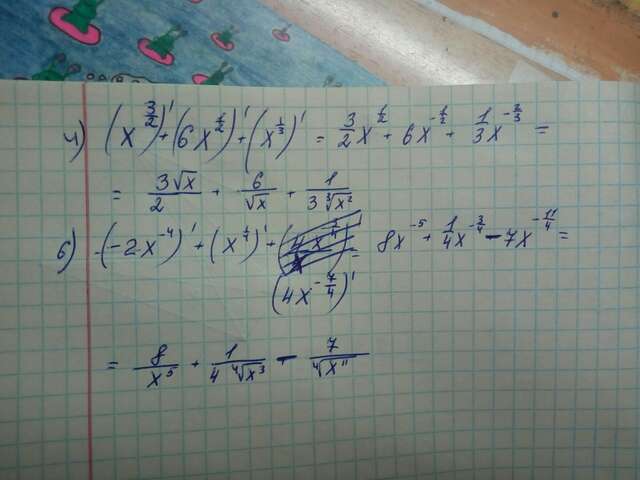 4) (x^{3/2})' + (6x^{1/2})' + (x^{1/3})' = 3/2 x^{1/2} + 6x^{-1/2} + 1/3 x^{-2/3} =
= 3√x/2 + 6/√x + 1/(3∛x²)
6) (-2x^{-4})' + (x^{1/4})' + = 8x^{-5} + 1/4 x^{-3/4} - 7x^{-11/4} =
(4x^{-7/4})'
= 8/x⁵ + 1/(4 ∜x³) - 7/∜x¹¹